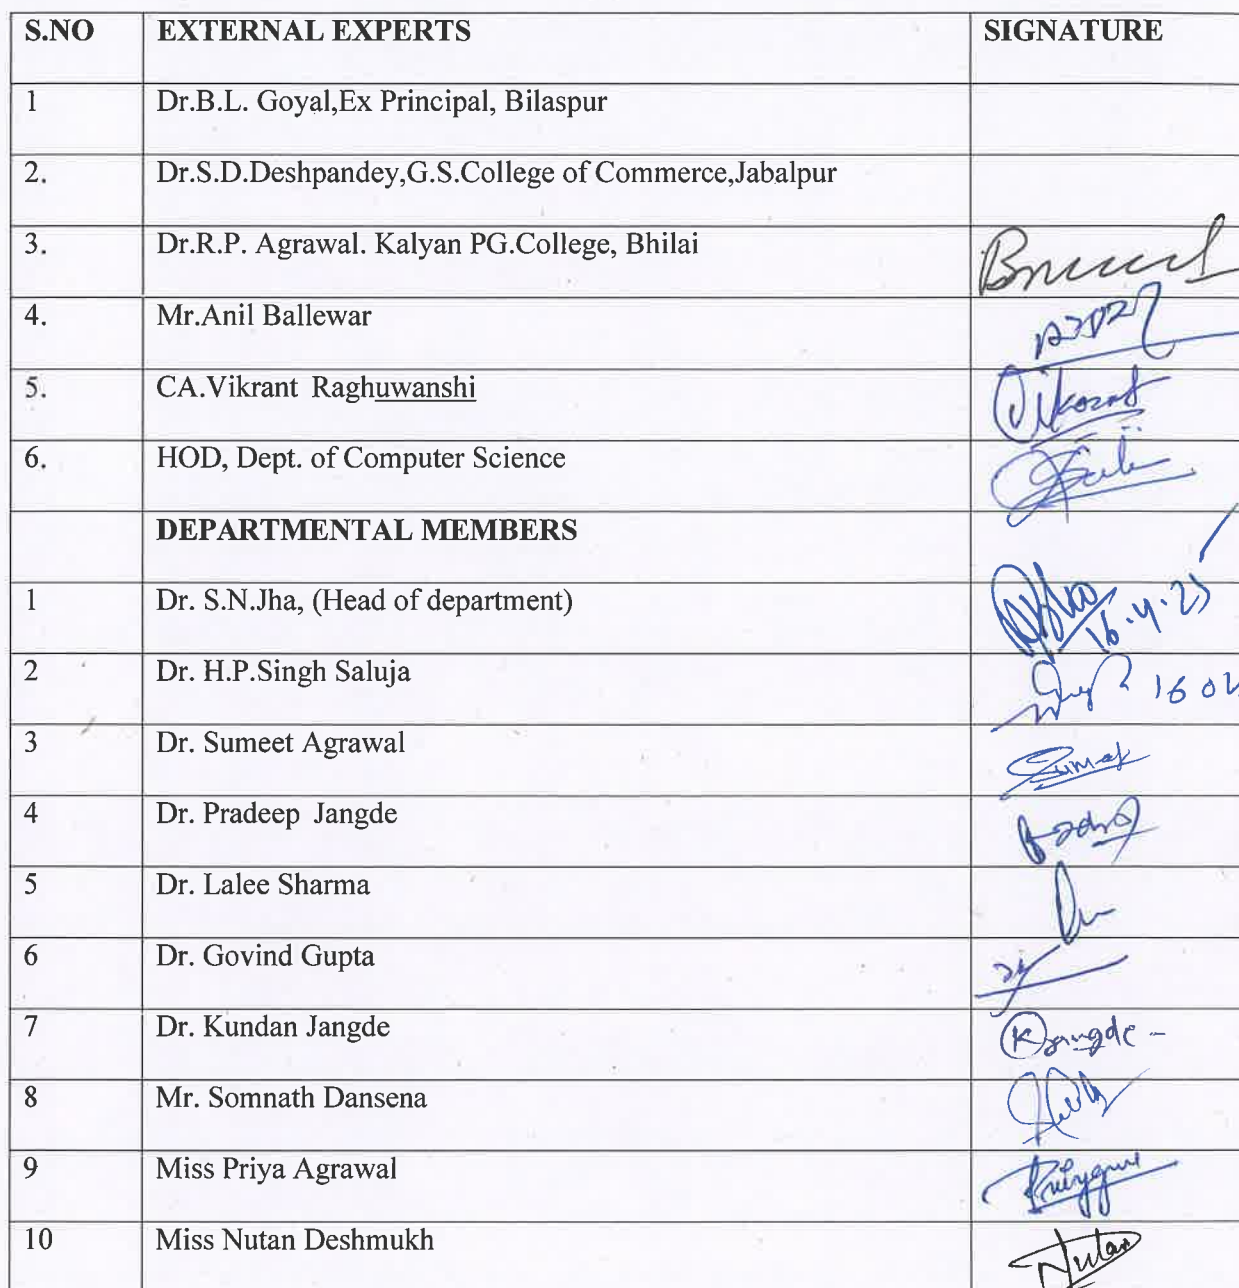 S.NO EXTERNAL EXPERTS SIGNATURE
1 Dr.B.L. Goyal,Ex Principal, Bilaspur
2. Dr.S.D.Deshpandey,G.S.College of Commerce,Jabalpur
3. Dr.R.P. Agrawal. Kalyan PG.College, Bhilai
4. Mr.Anil Ballewar
5. CA.Vikrant Raghuwanshi Vikrant
6. HOD, Dept. of Computer Science
DEPARTMENTAL MEMBERS
1 Dr. S.N.Jha, (Head of department) 16.4.25
2 Dr. H.P.Singh Saluja 16 04
3 Dr. Sumeet Agrawal Sumeet
4 Dr. Pradeep Jangde
5 Dr. Lalee Sharma
6 Dr. Govind Gupta
7 Dr. Kundan Jangde KJangde
8 Mr. Somnath Dansena
9 Miss Priya Agrawal
10 Miss Nutan Deshmukh Nutan